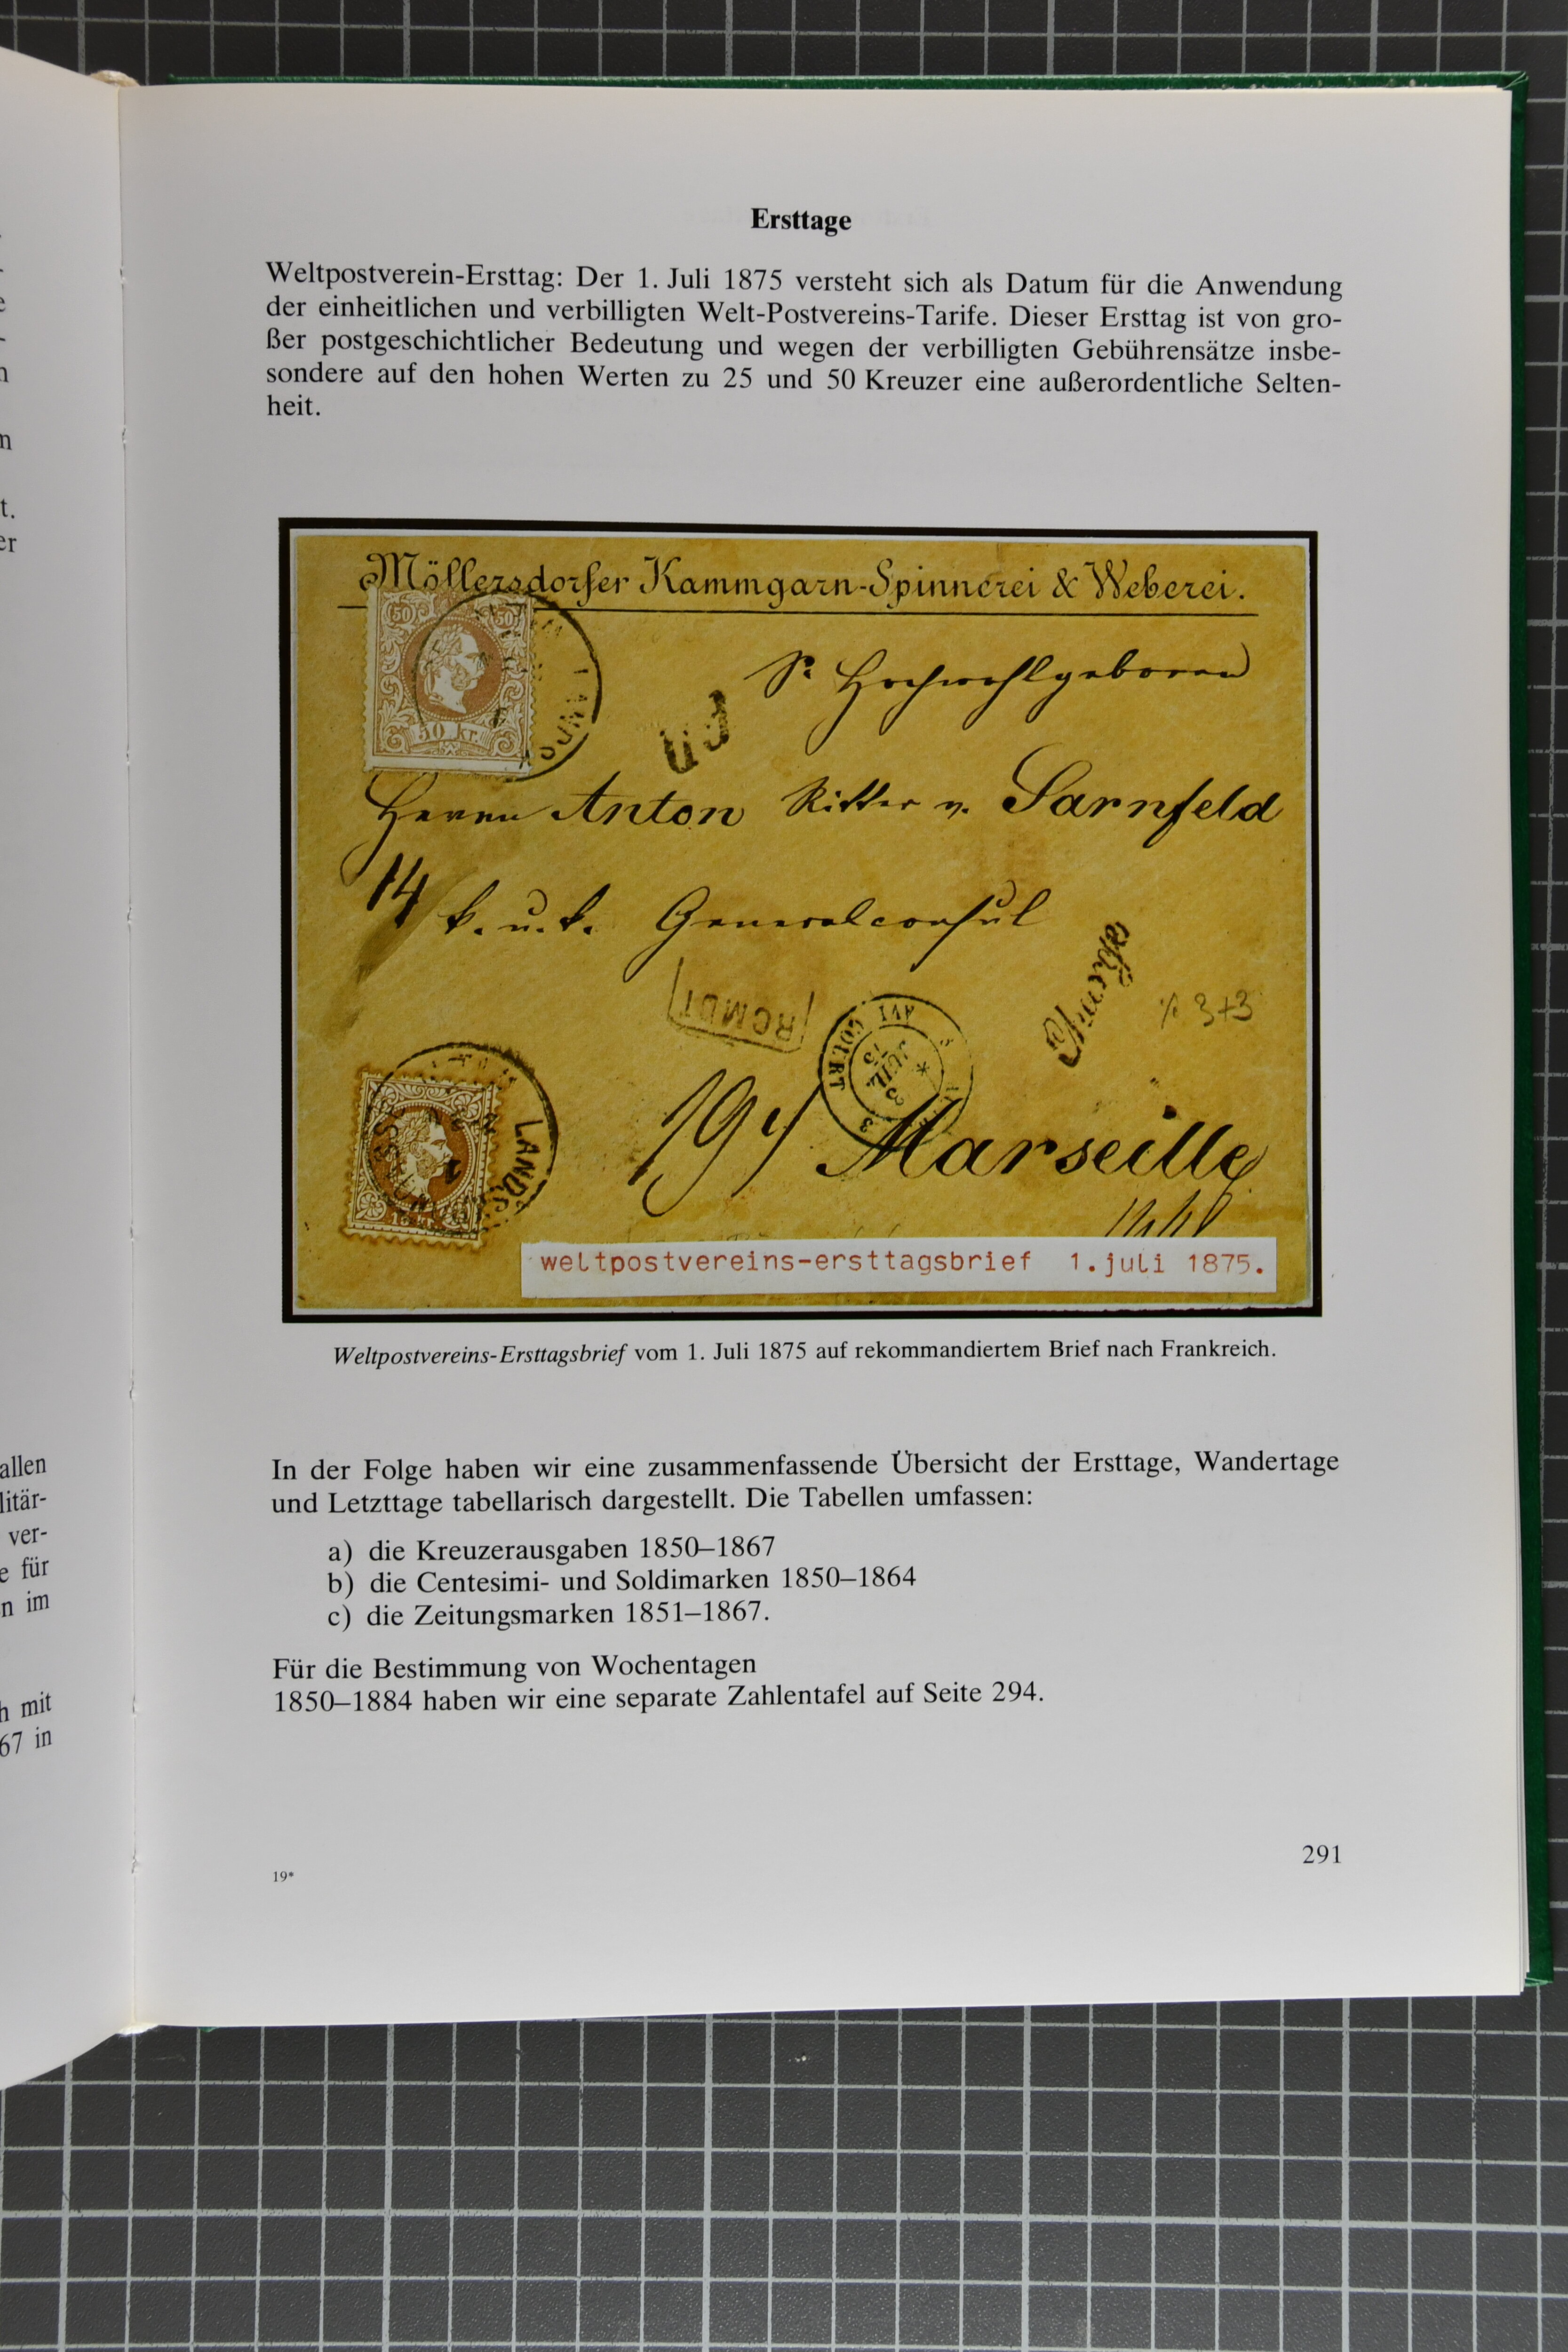 Ersttage
Weltpostverein-Ersttag: Der 1. Juli 1875 versteht sich als Datum für die Anwendung
der einheitlichen und verbilligten Welt-Postvereins-Tarife. Dieser Ersttag ist von gro-
ßer postgeschichtlicher Bedeutung und wegen der verbilligten Gebührensätze insbe-
sondere auf den hohen Werten zu 25 und 50 Kreuzer eine außerordentliche Selten-
heit.
Möllersdorfer Kammgarn-Spinnerei & Weberei.
50 50
50 kr.
Sr Hochwohlgeboren
Herrn Anton Ritter v. Sarnfeld
14
k. u. k. Generalconsul
RCMDT
Chargé
3+3
3 JUIL 75
LANDS
15 kr.
Marseille
weltpostvereins-ersttagsbrief 1.juli 1875.
Weltpostvereins-Ersttagsbrief vom 1. Juli 1875 auf rekommandiertem Brief nach Frankreich.
In der Folge haben wir eine zusammenfassende Übersicht der Ersttage, Wandertage
und Letzttage tabellarisch dargestellt. Die Tabellen umfassen:
a) die Kreuzerausgaben 1850–1867
b) die Centesimi- und Soldimarken 1850–1864
c) die Zeitungsmarken 1851–1867.
Für die Bestimmung von Wochentagen
1850–1884 haben wir eine separate Zahlentafel auf Seite 294.
291
19*
allen
litär-
ver-
für
n im
mit
67 in